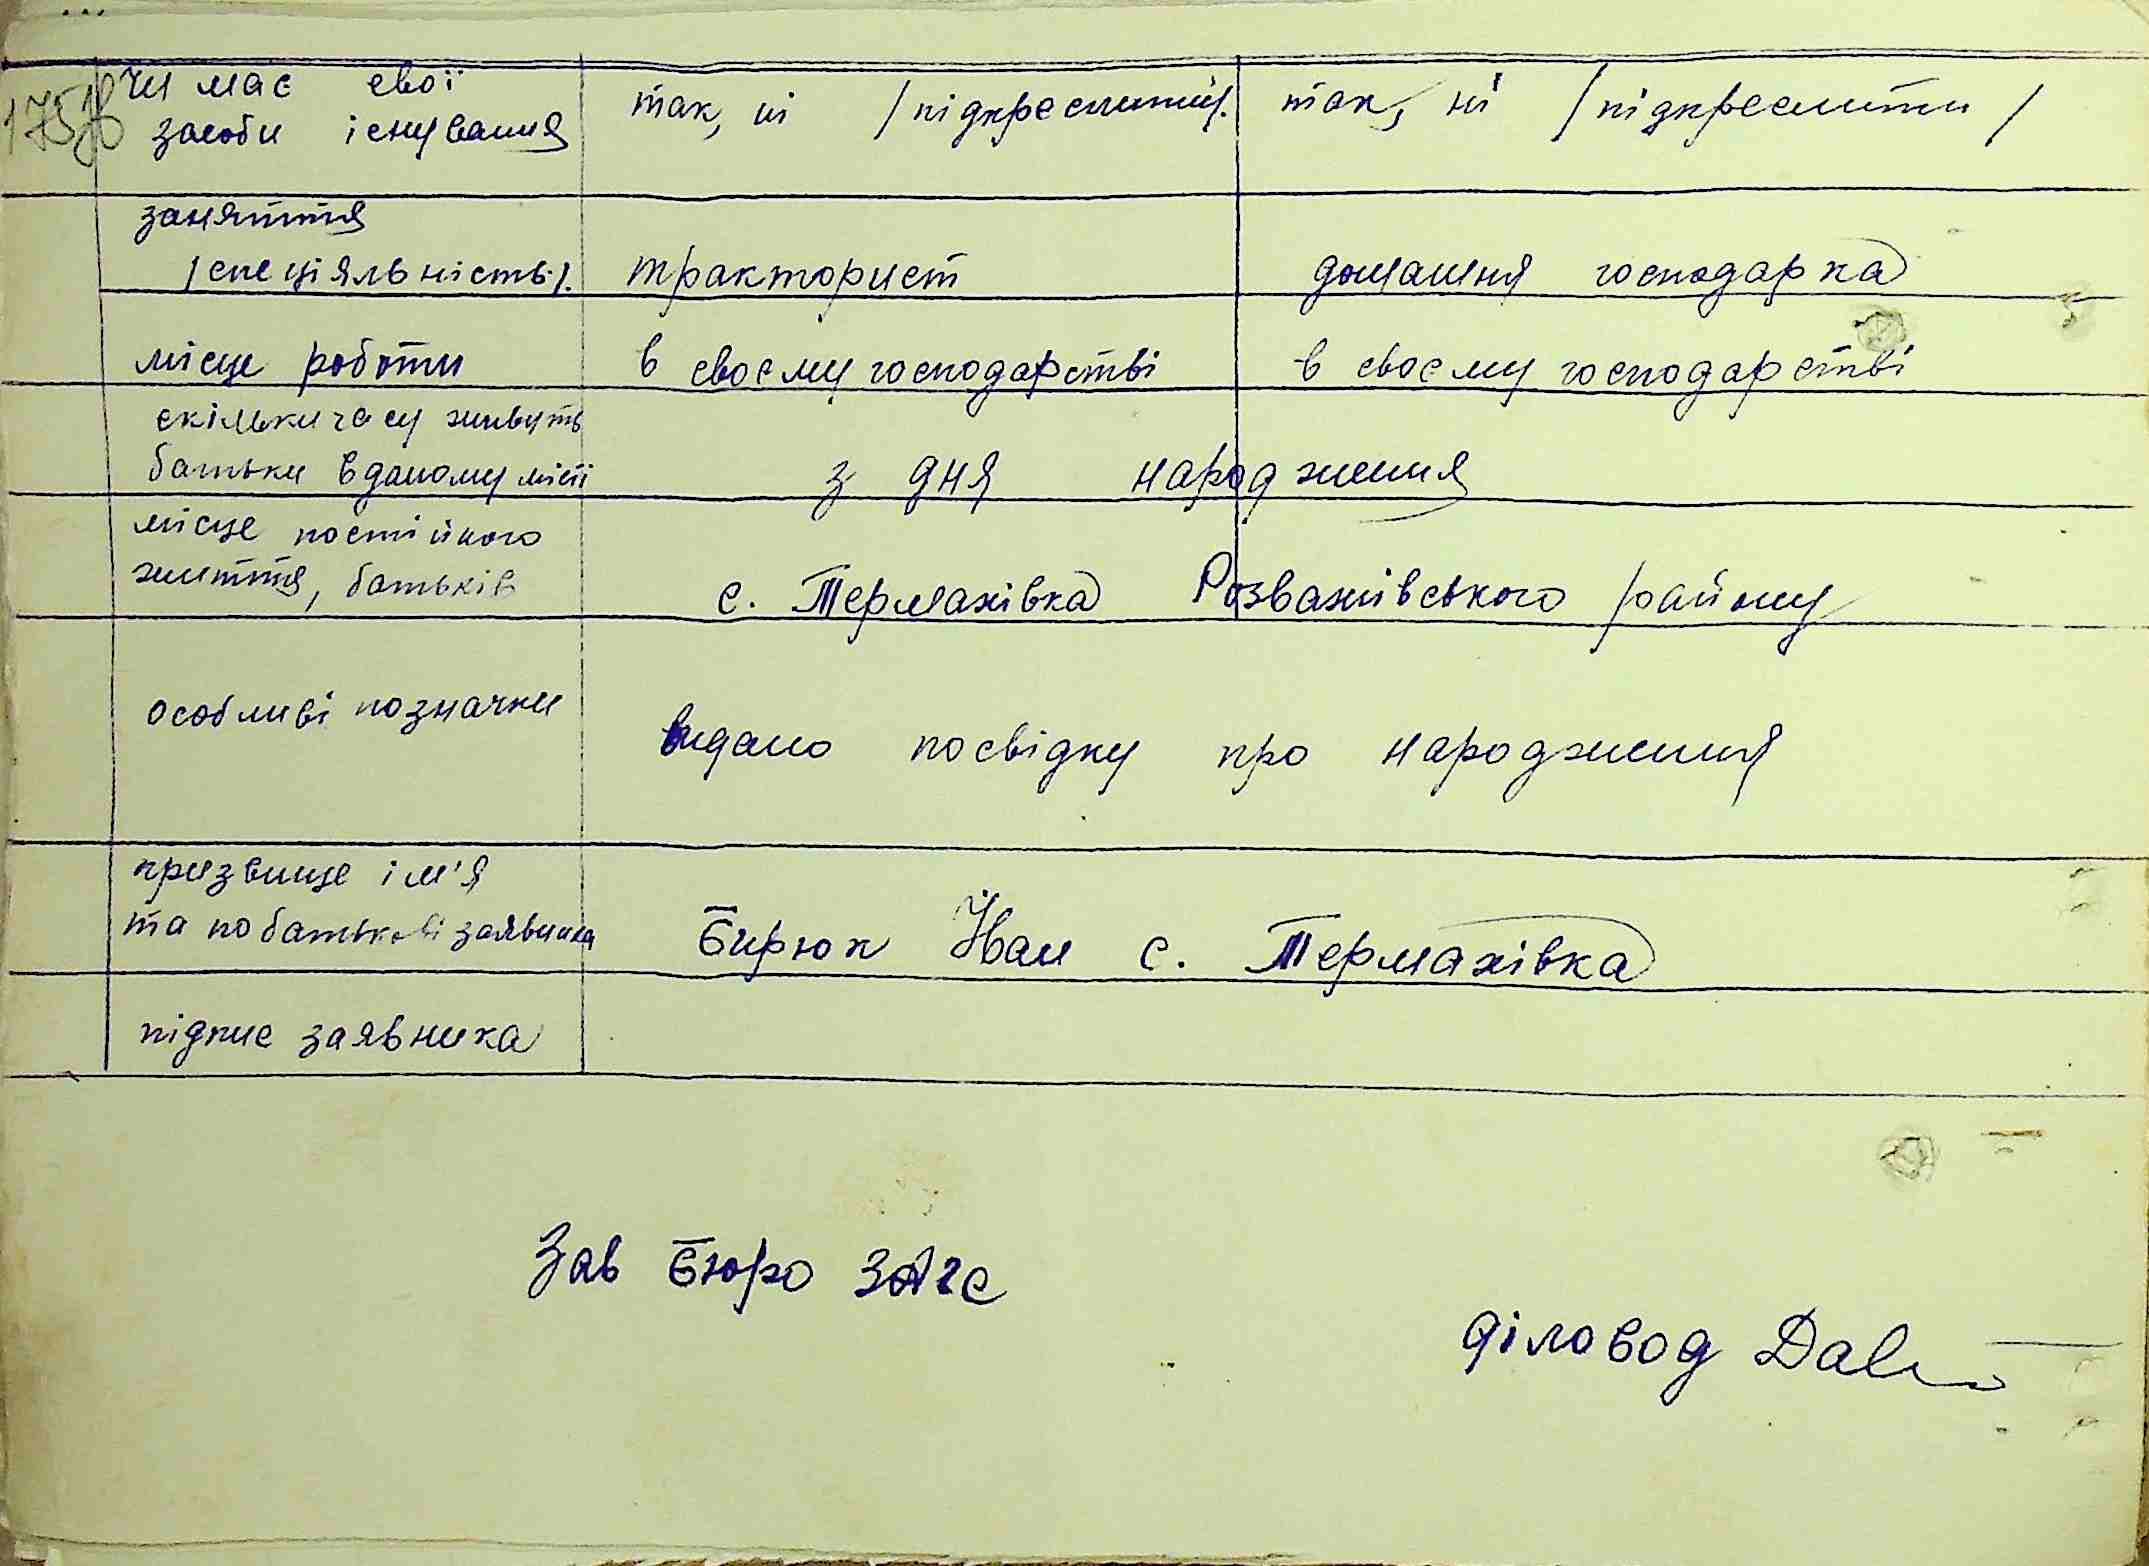 чи має свої
засоби існування
так, ні /підкреслити/.
так, ні /підкреслити/
заняття
/спеціяльність/.
тракторист
домашня господарка
місце роботи
в своєму господарстві
в своєму господарстві
скільки часу живуть
батьки в даному місті
з дня народження
місце постійного
життя, батьків
с. Термахівка Розважівського району
особливі позначки
видано посвідку про народження
призвище ім'я
та по батькові заявника
Бирюк Іван с. Термахівка
підпис заявника
Зав Бюро ЗАГС
Діловод